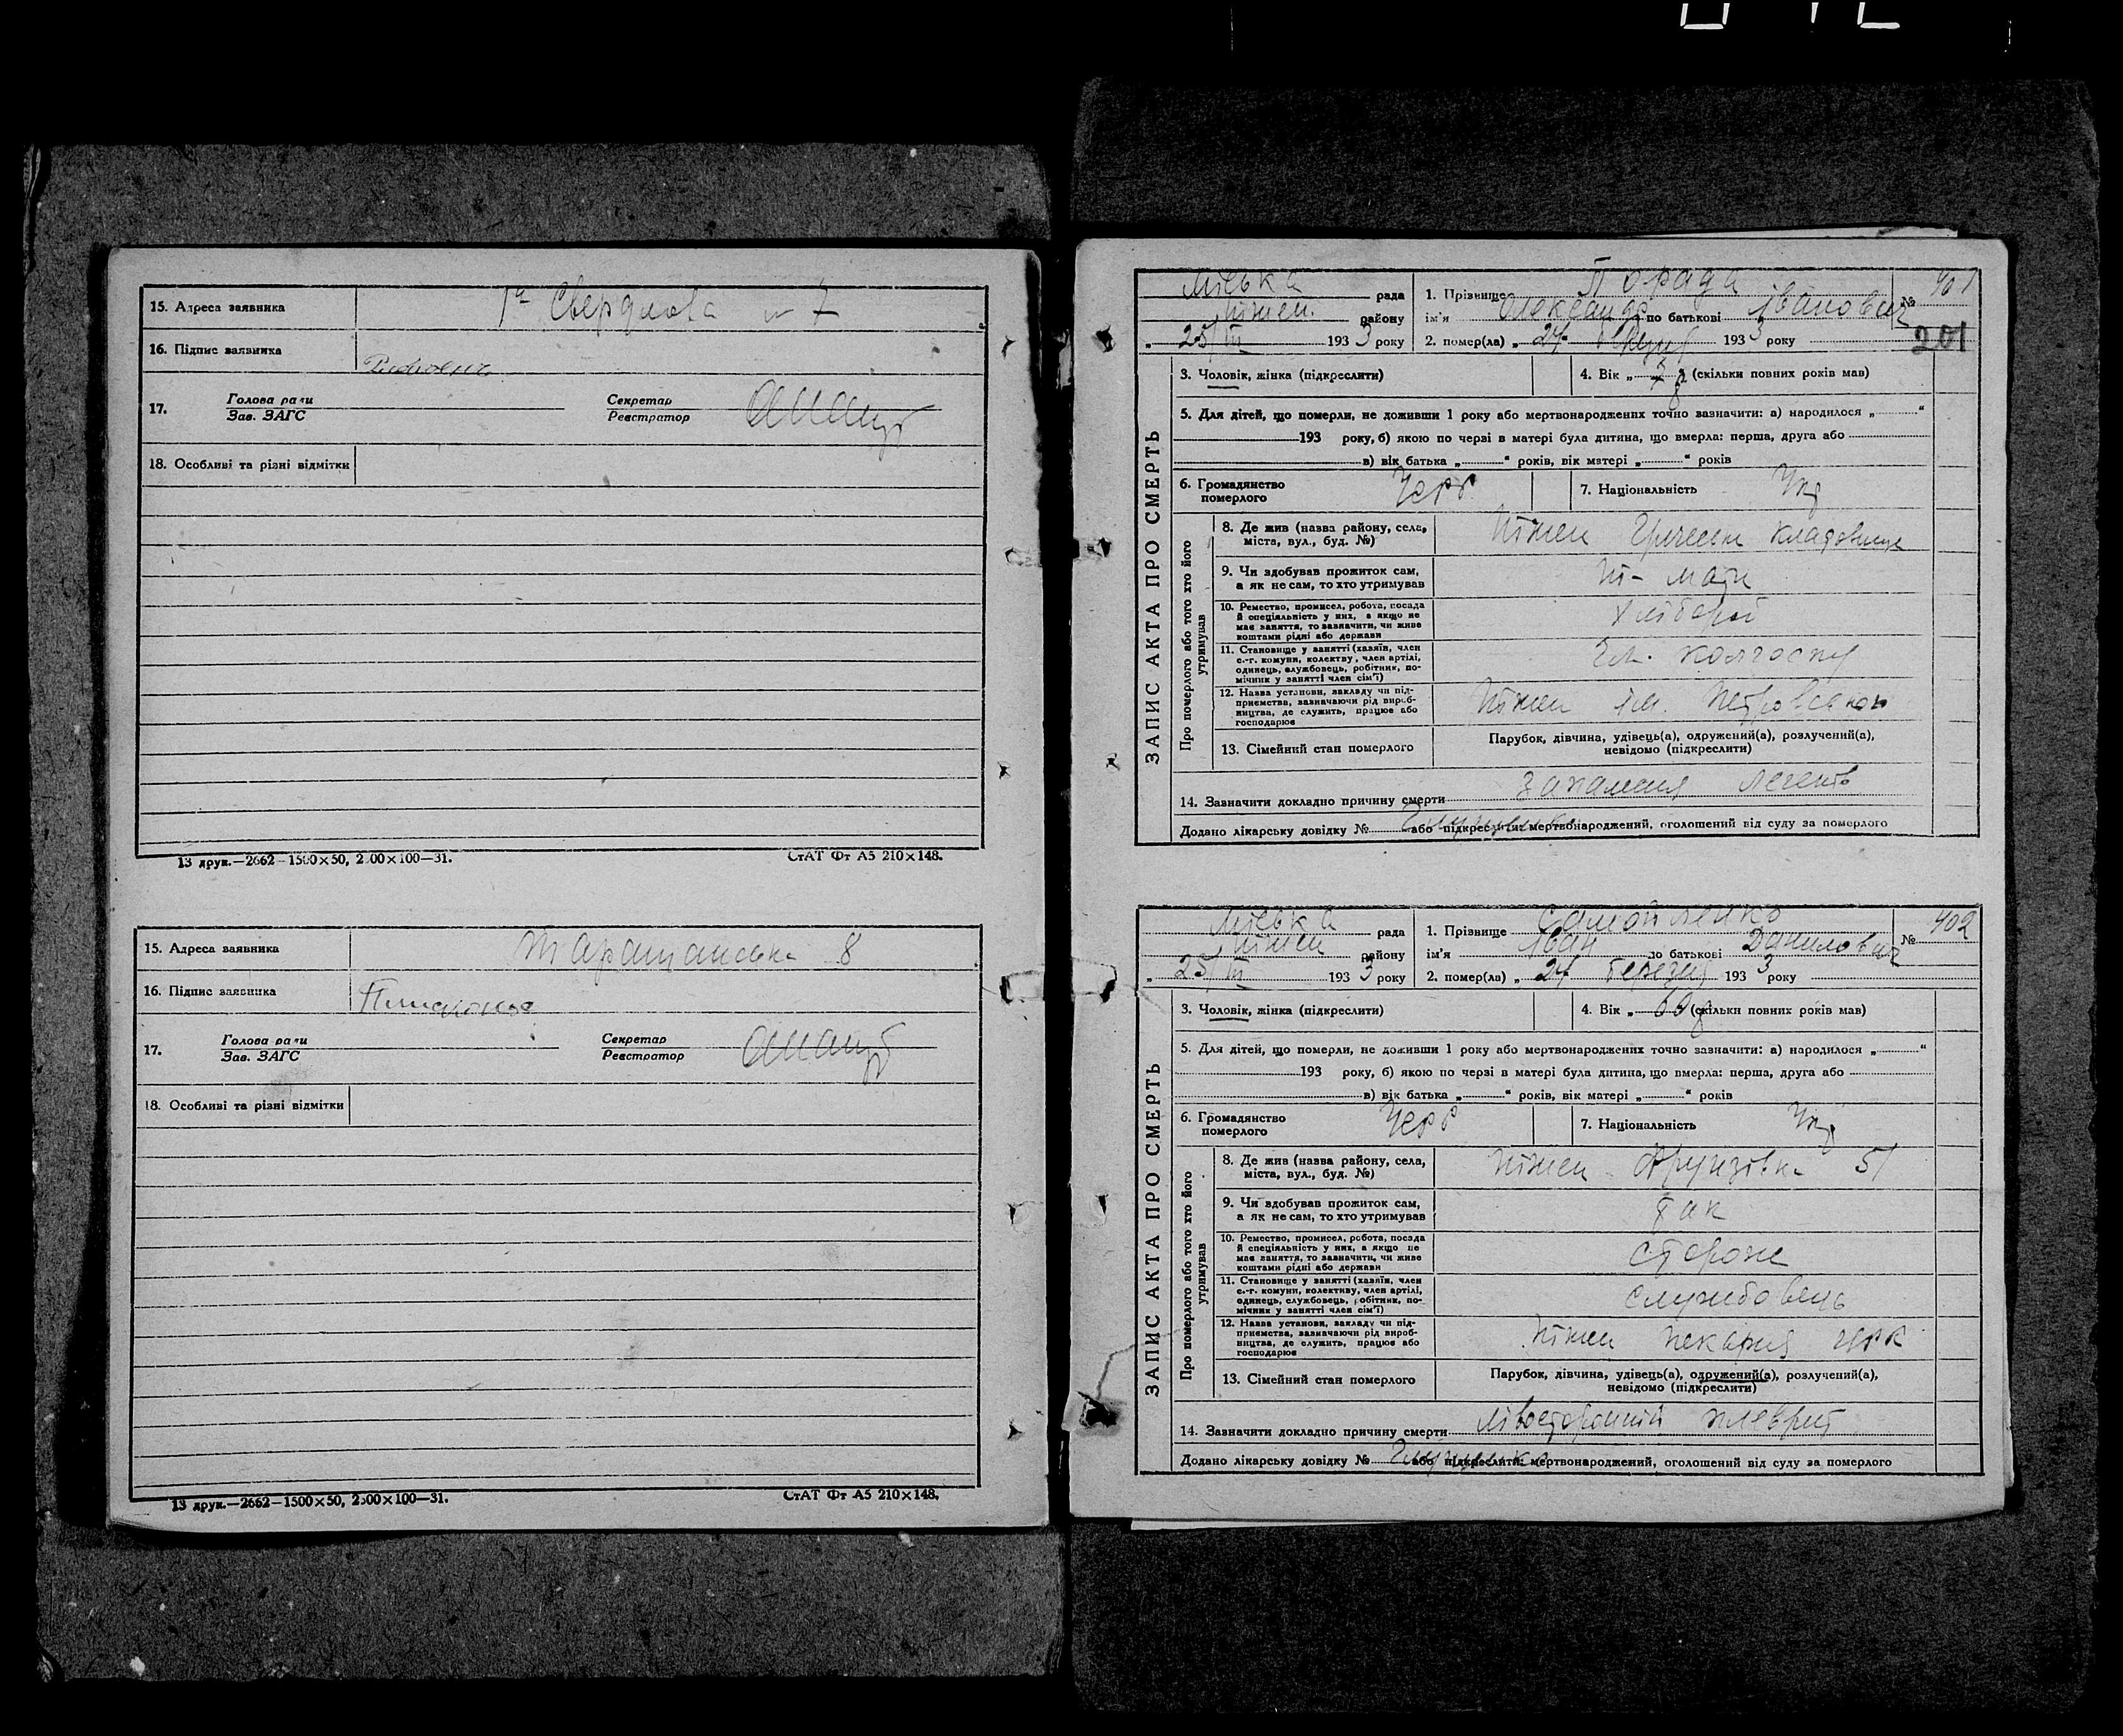 15. Адреса заявника Свердлова № 7
16. Підпис заявника
17. Голова ради Секретар
Зав. ЗАГС Реєстратор
18. Особливі та різні відмітки
13 друк.—2662—1500×50, 2500×100—31. СтАТ Фт А5 210×148.
15. Адреса заявника Таращанська 8
16. Підпис заявника
17. Голова ради Секретар
Зав. ЗАГС Реєстратор
18. Особливі та різні відмітки
13 друк.—2662—1500×50, 2500×100—31. СтАТ Фт А5 210×148.
ЗАПИС АКТА ПРО СМЕРТЬ
Міська рада 1. Прізвище Порада № 401
Ніжен. району ім'я Олександр по батькові Іванович
„ 25/III 1933 року 2. помер(ла) „ 24 березня 1933 року
201
3. Чоловік, жінка (підкреслити) 4. Вік „ (скільки повних років мав)
5. Для дітей, що померли, не доживши 1 року або мертвонароджених точно зазначити: а) народилося „ “
193 року, б) якою по черзі в матері була дитина, що вмерла: перша, друга або
в) вік батька „ “ років, вік матері „ “ років
6. Громадянство померлого УСРР 7. Національність Укр
Про померлого або того хто його утримував
8. Де жив (назва району, села, міста, вул., буд. №) Ніжен Грецьке кладовище
9. Чи здобував прожиток сам, а як не сам, то хто утримував Ні - мати
10. Ремество, промисел, робота, посада й спеціальність у них, а якщо не має заняття, то зазначити, чи живе коштами рідні або держави хлібороб
11. Становище у занятті (хазяїн, член с.-г. комуни, колективу, член артілі, одинець, службовець, робітник, помічник у занятті член сім'ї) Чл. колгоспу
12. Назва установи, закладу чи підприємства, зазначаючи рід виробництва, де служить, працює або господарює Ніжен ім. Петровського
13. Сімейний стан померлого Парубок, дівчина, удівець(а), одружений(а), розлучений(а),
невідомо (підкреслити)
14. Зазначити докладно причину смерти запалення легенів
Додано лікарську довідку № або підкреслити: мертвонароджений, оголошений від суду за померлого
ЗАПИС АКТА ПРО СМЕРТЬ
Міська рада 1. Прізвище Самойленко № 402
Ніжен району ім'я Іван по батькові Данилович
„ 25/III 1933 року 2. помер(ла) „ 24 березня 1933 року
3. Чоловік, жінка (підкреслити) 4. Вік „ 60 (скільки повних років мав)
5. Для дітей, що померли, не доживши 1 року або мертвонароджених точно зазначити: а) народилося „ “
193 року, б) якою по черзі в матері була дитина, що вмерла: перша, друга або
в) вік батька „ “ років, вік матері „ “ років
6. Громадянство померлого УСРР 7. Національність Укр
Про померлого або того хто його утримував
8. Де жив (назва району, села, міста, вул., буд. №) Ніжен Фрунзівка 51
9. Чи здобував прожиток сам, а як не сам, то хто утримував так
10. Ремество, промисел, робота, посада й спеціальність у них, а якщо не має заняття, то зазначити, чи живе коштами рідні або держави сторож
11. Становище у занятті (хазяїн, член с.-г. комуни, колективу, член артілі, одинець, службовець, робітник, помічник у занятті член сім'ї) службовець
12. Назва установи, закладу чи підприємства, зазначаючи рід виробництва, де служить, працює або господарює Ніжен пекарня ЦРК
13. Сімейний стан померлого Парубок, дівчина, удівець(а), одружений(а), розлучений(а),
невідомо (підкреслити)
14. Зазначити докладно причину смерти лівосторонній плеврит
Додано лікарську довідку № або підкреслити: мертвонароджений, оголошений від суду за померлого